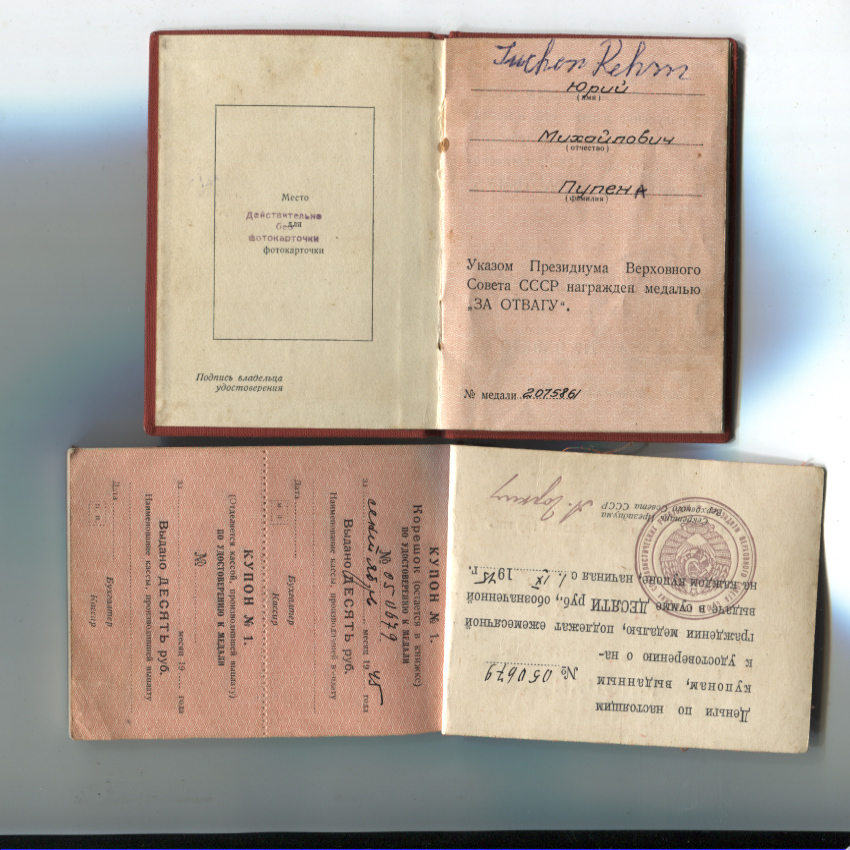 Юрий
(имя)
Михайлович
(отчество)
Пупен
(фамилия)
Место
для
фотокарточки
Действительно
без
фотокарточки
Подпись владельца
удостоверения
Указом Президиума Верховного
Совета СССР награжден медалью
„ЗА ОТВАГУ“.
№ медали 2075861
КУПОН № 1.
Корешок (остается в книжке)
ПО УДОСТОВЕРЕНИЮ К МЕДАЛИ
№ 050679
за месяц 1945 года
Выдано ДЕСЯТЬ руб.
Наименование кассы, производившей выплату
Дата
Бухгалтер
м. п.
Кассир
КУПОН № 1.
(Отдается кассой, производившей выплату)
ПО УДОСТОВЕРЕНИЮ К МЕДАЛИ
№
за месяц 19 года
Выдано ДЕСЯТЬ руб.
Наименование кассы, производившей выплату
Дата
Бухгалтер
м. п.
Кассир
Деньги по настоящим
купонам, выданным
№ 050679
к удостоверению о на-
граждении медалью, подлежат ежемесячной
выдаче в сумме ДЕСЯТИ руб., обозначенной
на каждом купоне, начиная с 1 IX 1945 г.
Секретарь Президиума
Верховного Совета СССР